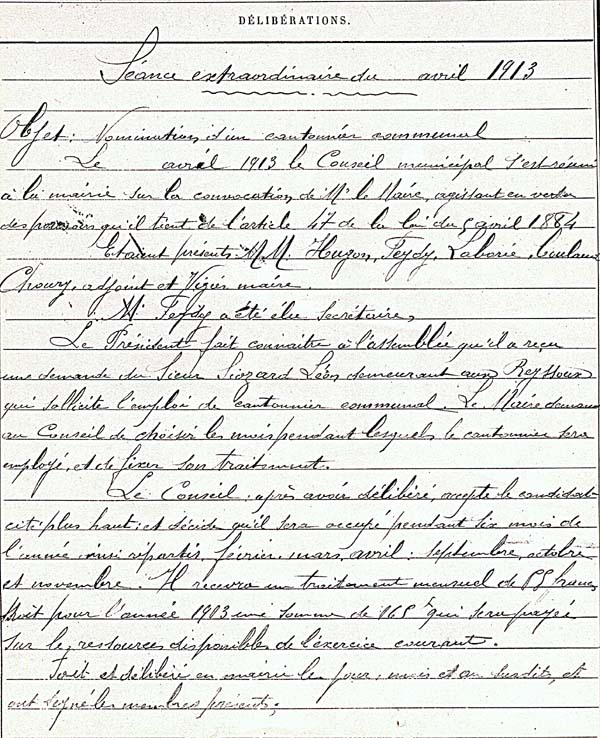 DÉLIBÉRATIONS.
Séance extraordinaire du avril 1913
Objet : Nomination d'un cantonnier communal
Le avril 1913 le Conseil municipal s'est réuni
à la mairie sur la convocation de Mr le Maire, agissant en vertu
des pouvoirs qu'il tient de l'article 47 de la loi du 5 avril 1884
Etaient présents MM. Hugon, Feydy, Laborie,
Choury, adjoint et Vigiés maire.
M. Feydy a été élu Secrétaire,
Le Président fait connaitre à l'assemblée qu'il a reçu
une demande du Sieur Siozard Léon demeurant aux
qui sollicite l'emploi de cantonnier communal. Le Maire demande
au Conseil de choisir les mois pendant lesquels le cantonnier sera
employé, et de fixer son traitement.
Le Conseil : après avoir délibéré, accepte le candidat
cité plus haut ; et décide qu'il sera occupé pendant six mois de
l'année ainsi répartis, février, mars, avril : septembre, octobre
et novembre. Il recevra un traitement mensuel de 55 francs
Soit pour l'année 1913 une somme de 165 f qui sera payée
sur les ressources disponibles de l'exercice courant.
Fait et délibéré en mairie les jour, mois et an susdits, et
ont signé les membres présents.